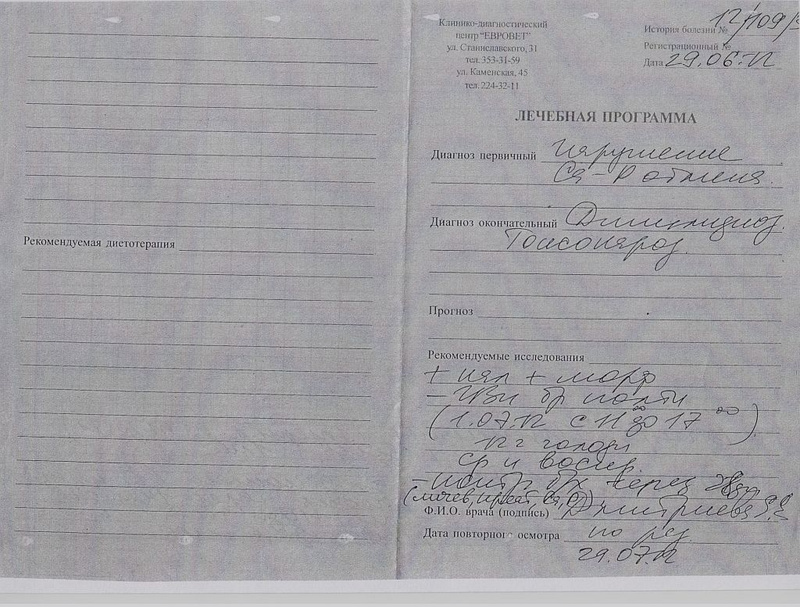 Рекомендуемая диетотерапия
Клинико-диагностический
центр "ЕВРОВЕТ"
ул. Станиславского, 31
тел. 353-31-59
ул. Каменская, 45
тел. 224-32-11
История болезни № 12/109/3
Регистрационный №
Дата 29.06.12
ЛЕЧЕБНАЯ ПРОГРАММА
Диагноз первичный Нарушение
Ca-P обмена.
Диагноз окончательный
Токсокароз.
Прогноз
Рекомендуемые исследования
+ кал + моча
- УЗИ бр полти
(1.07.12 с 11 до 17 00)
12 г голода
ср и воскр.
через
Ф.И.О. врача (подпись) Дмитриева
Дата повторного осмотра по рез
29.07.12